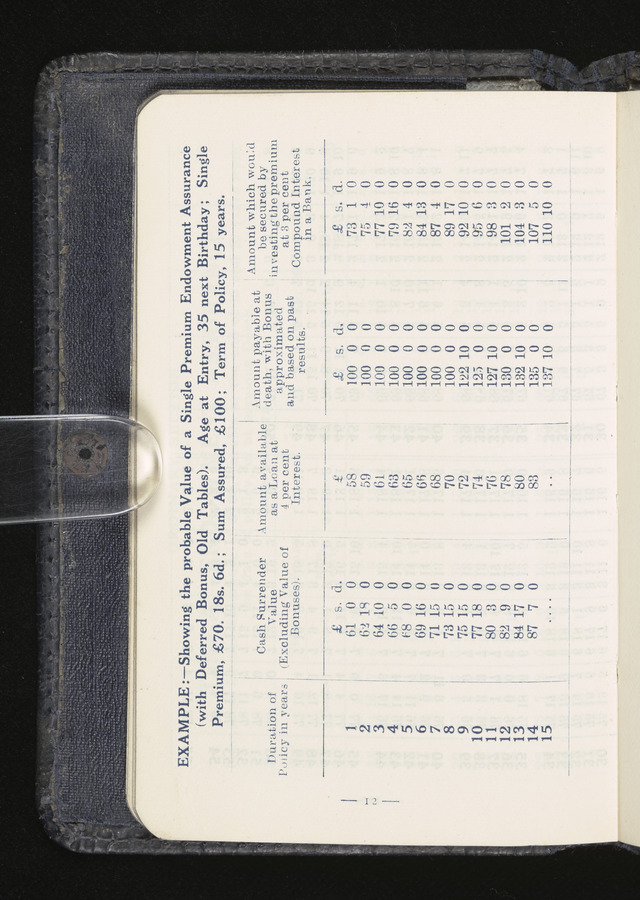 EXAMPLE:—Showing the probable Value of a Single Premium Endowment Assurance
(with Deferred Bonus, Old Tables). Age at Entry, 35 next Birthday; Single
Premium, £70. 18s. 6d.; Sum Assured, £100; Term of Policy, 15 years.
Duration of Policy in years | Cash Surrender Value (Excluding Value of Bonuses). | Amount available as a Loan at 4 per cent Interest. | Amount payable at death, with Bonus approximated and based on past results. | Amount which would be secured by investing the premium at 3 per cent Compound Interest in a Bank.
£ s. d. | £ | £ s. d. | £ s. d.
1 | 61 0 0 | 58 | 100 0 0 | 73 1 0
2 | 62 18 0 | 59 | 100 0 0 | 75 4 0
3 | 64 10 0 | 61 | 100 0 0 | 77 10 0
4 | 66 5 0 | 63 | 100 0 0 | 79 16 0
5 | 68 0 0 | 65 | 100 0 0 | 82 4 0
6 | 69 16 0 | 66 | 100 0 0 | 84 13 0
7 | 71 15 0 | 68 | 100 0 0 | 87 4 0
8 | 73 15 0 | 70 | 100 0 0 | 89 17 0
9 | 75 15 0 | 72 | 122 10 0 | 92 10 0
10 | 77 18 0 | 74 | 125 0 0 | 95 6 0
11 | 80 3 0 | 76 | 127 10 0 | 98 3 0
12 | 82 9 0 | 78 | 130 0 0 | 101 2 0
13 | 84 17 0 | 80 | 132 10 0 | 104 3 0
14 | 87 7 0 | 83 | 135 0 0 | 107 5 0
15 | .... | .. | 137 10 0 | 110 10 0
— 12 —